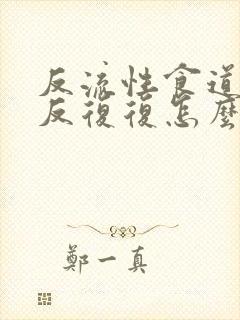 反流性食道
反復復怎麼
鄭一真